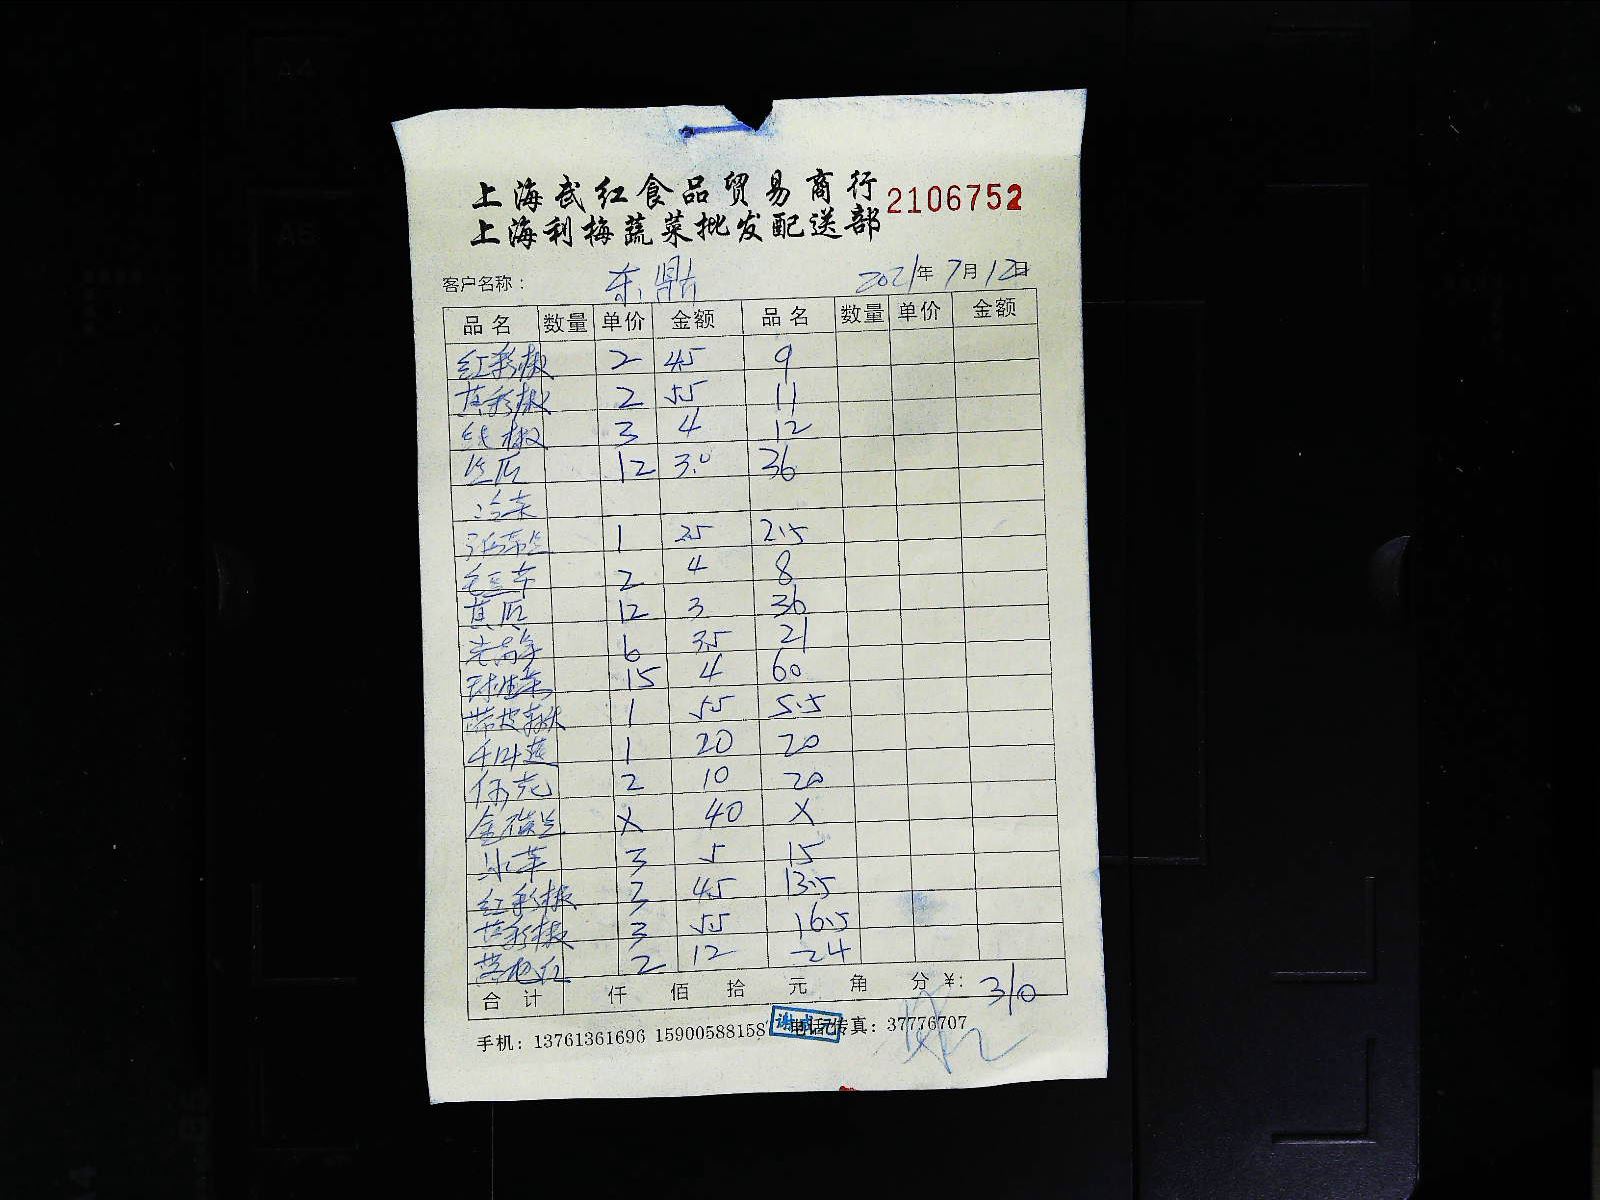 上海武红食品贸易商行
2106752
上海利梅蔬菜批发配送部
客户名称： 东鼎 2021年7月12日
品名 数量 单价 金额 品名 数量 单价 金额
红彩椒 2 4.5 9
黄彩椒 2 5.5 11
线椒 3 4 12
12 3.0 36
冷菜
1 2.5 2.5
毛豆 2 4 8
黄瓜 12 3 36
6 3.5 21
球生菜 15 4 60
带皮 1 5.5 5.5
1 20 20
2 10 20
X 40 X
3 5 15
红彩椒 3 4.5 13.5
黄彩椒 3 5.5 16.5
2 12 24
合计 仟 佰 拾 元 角 分 ¥: 310
手机：13761361696 15900588158 电话传真：37776707